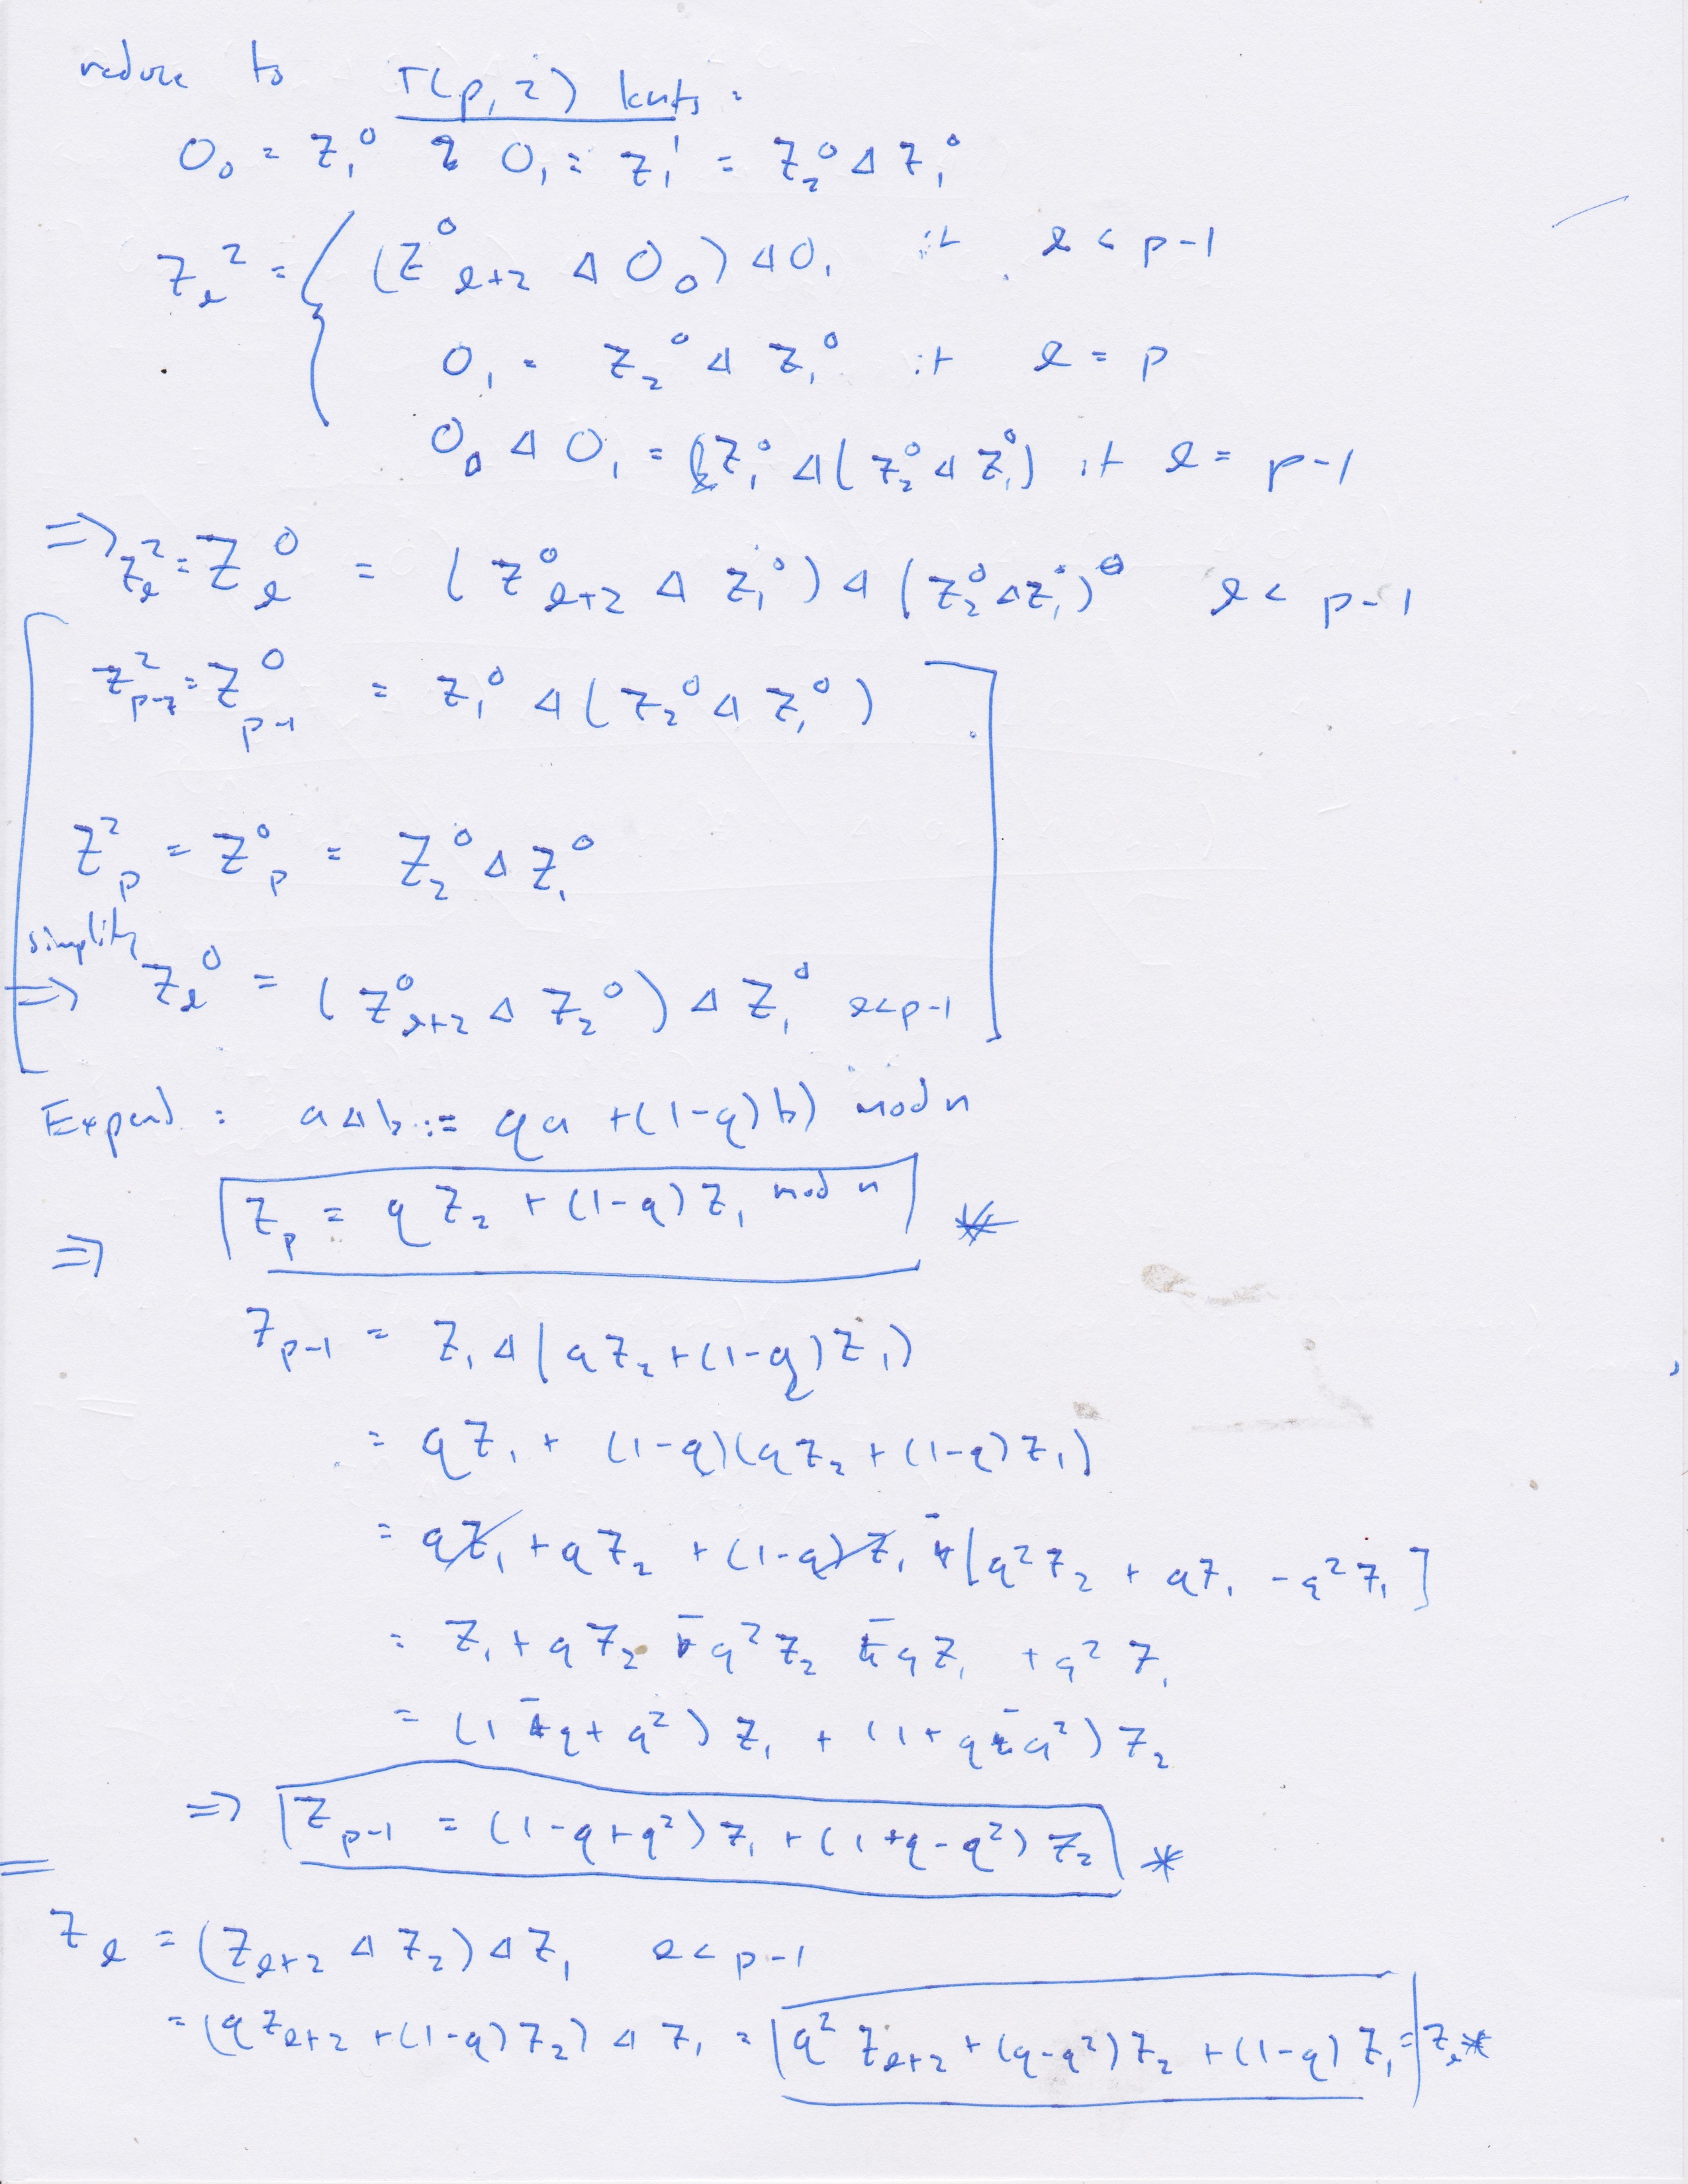 reduce to T(p, 2) knts:
O₀ = Z₁⁰ & O₁ = Z₁¹ = Z₂⁰ ◁ Z₁⁰
Zₗ² = { (Z⁰ₗ₊₂ ◁ O₀) ◁ O₁ if l < p-1
O₁ = Z₂⁰ ◁ Z₁⁰ if l = p
O₀ ◁ O₁ = Z₁⁰ ◁ (Z₂⁰ ◁ Z₁⁰) if l = p-1
⇒ Zₗ² = Zₗ⁰ = (Z⁰ₗ₊₂ ◁ Z₁⁰) ◁ (Z₂⁰ ◁ Z₁⁰) l < p-1
Z²ₚ₋₁ = Z⁰ₚ₋₁ = Z₁⁰ ◁ (Z₂⁰ ◁ Z₁⁰)
Z²ₚ = Z⁰ₚ = Z₂⁰ ◁ Z₁⁰
simplify
⇒ Zₗ⁰ = (Z⁰ₗ₊₂ ◁ Z₂⁰) ◁ Z₁⁰ l<p-1
Expand : a ◁ b := qa + (1-q)b) mod n
⇒ Zₚ = q Z₂ + (1-q) Z₁ mod n *
Zₚ₋₁ = Z₁ ◁ (qZ₂ + (1-q)Z₁)
= qZ₁ + (1-q)(qZ₂ + (1-q)Z₁)
= qZ₁ + qZ₂ + (1-q)Z₁ - [q²Z₂ + qZ₁ - q²Z₁]
= Z₁ + qZ₂ - q²Z₂ - qZ₁ + q²Z₁
= (1 - q + q²) Z₁ + (1 + q - q²) Z₂
⇒ Zₚ₋₁ = (1-q+q²) Z₁ + (1+q-q²) Z₂ *
Zₗ = (Zₗ₊₂ ◁ Z₂) ◁ Z₁ l < p-1
= (qZₗ₊₂ + (1-q)Z₂) ◁ Z₁ = q² Zₗ₊₂ + (q-q²)Z₂ + (1-q) Z₁ = Zₗ *